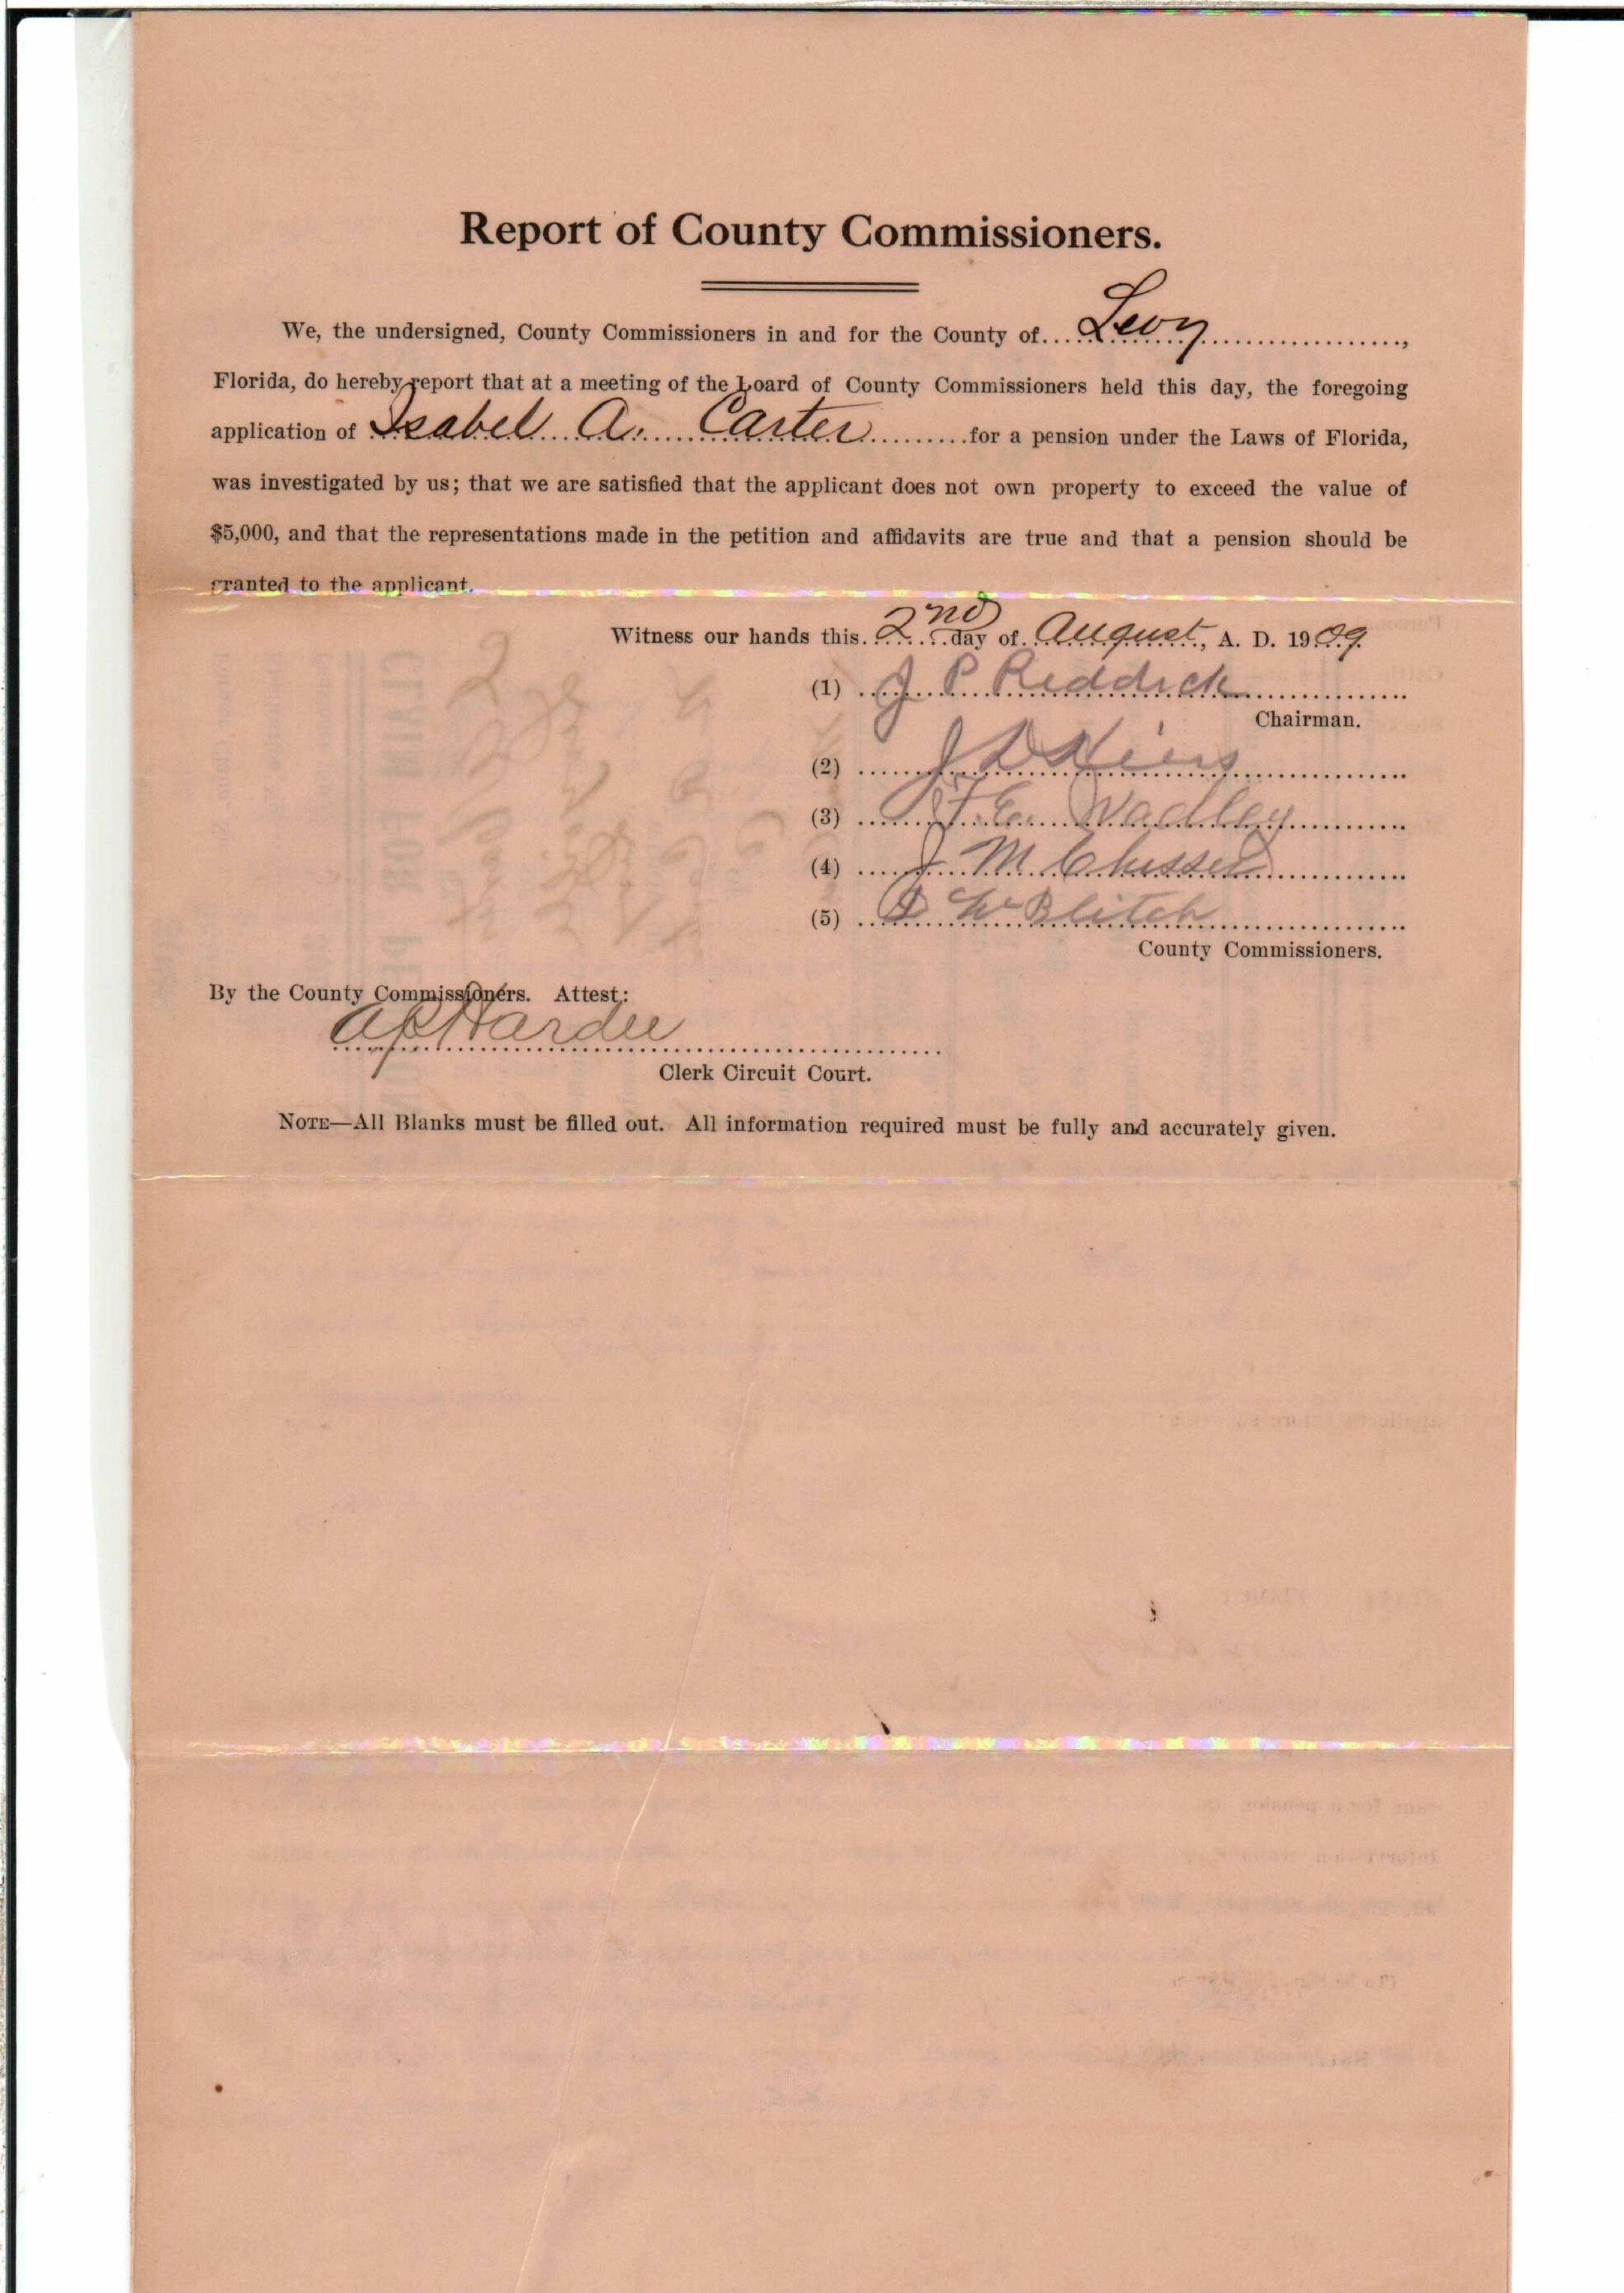 Report of County Commissioners.
We, the undersigned, County Commissioners in and for the County of Levy,
Florida, do hereby report that at a meeting of the Board of County Commissioners held this day, the foregoing
application of Isabel A. Carter for a pension under the Laws of Florida,
was investigated by us; that we are satisfied that the applicant does not own property to exceed the value of
$5,000, and that the representations made in the petition and affidavits are true and that a pension should be
granted to the applicant.
Witness our hands this 2nd day of August, A. D. 1909.
(1) J P Reddick
Chairman.
(2) J D
(3) T. E. Wadley
(4) J. M.
(5) Blitch
County Commissioners.
By the County Commissioners. Attest:
Hardee
Clerk Circuit Court.
NOTE—All Blanks must be filled out. All information required must be fully and accurately given.